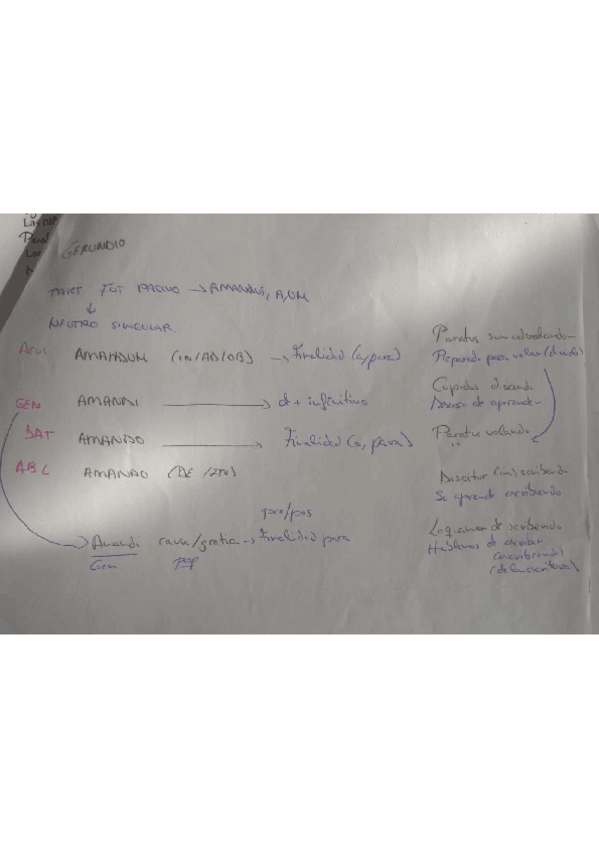 Perol
GERUNDIO
PART FUT PASIVO → AMANDUS, A, UM
↓
NEUTRO SINGULAR
Acus AMANDUM (IN/AD/OB) → Finalidad (a, para)
Paratus sum ad volandum
Preparado para volar (d vuelo)
GEN AMANDI → de + infinitivo
Cupidus discendi
Deseoso de aprender
DAT AMANDO → Finalidad (a, para)
Paratus volando
ABL AMANDO (DE / IN)
Discitur (in) scribendo
Se aprende escribiendo
pro/pos
Amandi causa/gratia → Finalidad para
Gen prep
Loquamur de scribendo
Hablemos de escribir
(escribiendo)
(de la escritura)